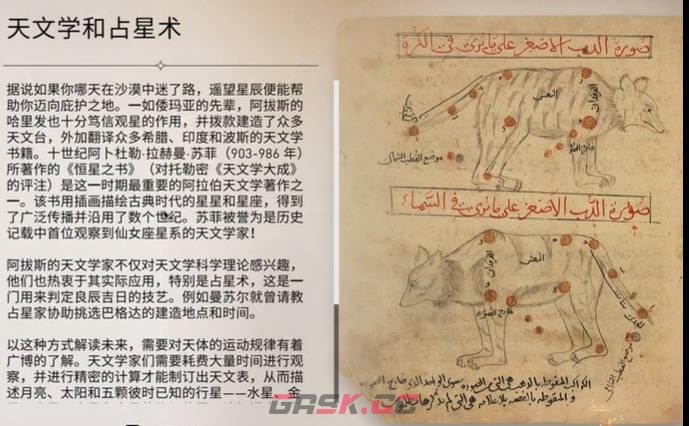 天文学和占星术
据说如果你哪天在沙漠中迷了路，遥望星辰便能帮
助你迈向庇护之地。一如倭玛亚的先辈，阿拔斯的
哈里发也十分笃信观星的作用，并拨款建造了众多
天文台，外加翻译众多希腊、印度和波斯的天文学
书籍。十世纪阿卜杜勒·拉赫曼·苏菲（903-986 年）
所著作的《恒星之书》（对托勒密《天文学大成》
的评注）是这一时期最重要的阿拉伯天文学著作之
一。该书用插画描绘古典时代的星星和星座，得到
了广泛传播并沿用了数个世纪。苏菲被誉为是历史
记载中首位观察到仙女座星系的天文学家！
阿拔斯的天文学家不仅对天文学科学理论感兴趣，
他们也热衷于其实际应用，特别是占星术，这是一
门用来判定良辰吉日的技艺。例如曼苏尔就曾请教
占星家协助挑选巴格达的建造地点和时间。
以这种方式解读未来，需要对天体的运动规律有着
广博的了解。天文学家们需要耗费大量时间进行观
察，并进行精密的计算才能制订出天文表，从而描
述月亮、太阳和五颗彼时已知的行星——水星、金
صورة الدب الاصغر على ما يرى في الكرة
النعش
الفرقدان
موضع القطب الشمالي
صورة الدب الاصغر على ما يرى في السماء
الفرقدان
النعش
موضع القطب الشمالي
GASK.CC